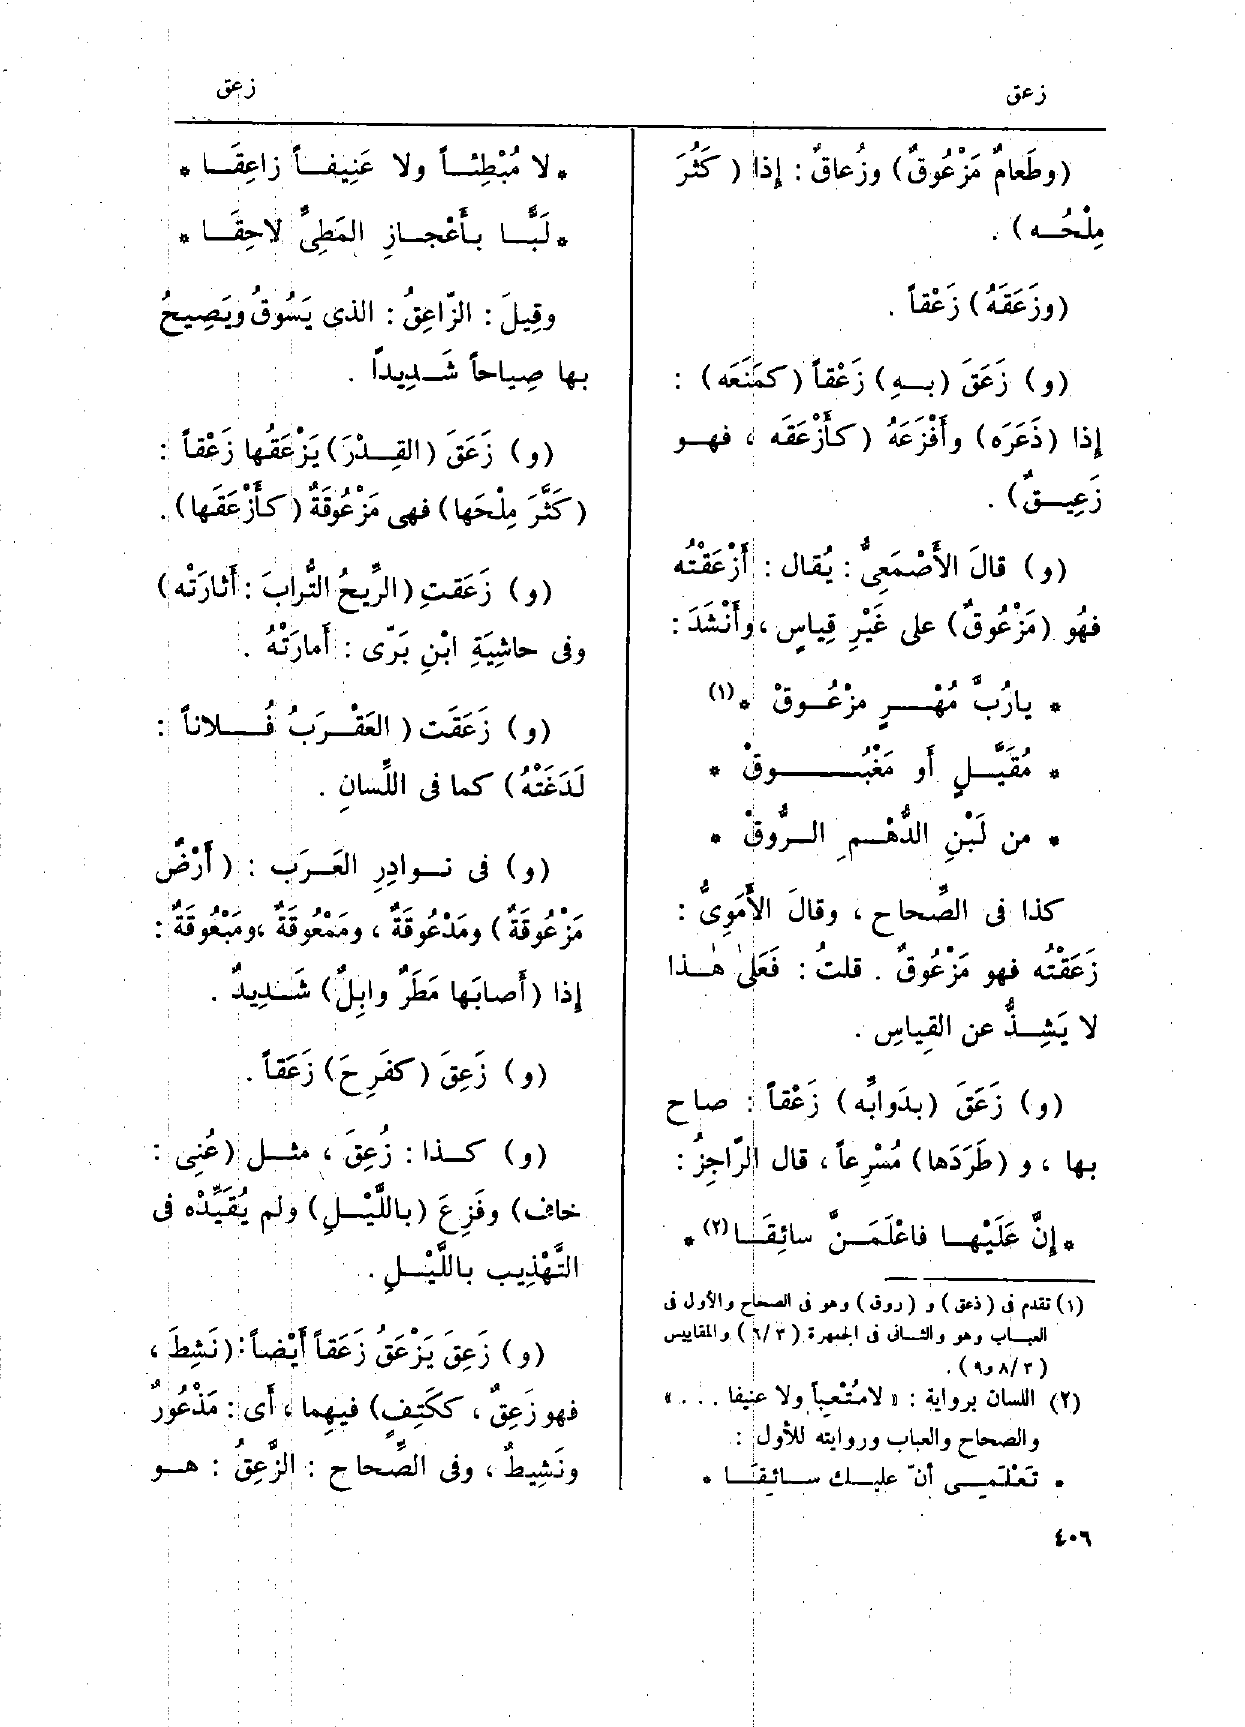 زعق
زعق
(وطَعامٌ مَزْعُوقٌ) وزُعاقٌ : إِذا ( كَثُرَ
مِلْحُـه ) .
(وزَعَقَهُ) زَعْقاً .
(و) زَعَقَ (بـهِ) زَعْقاً (كمَنَعَه) :
إِذا (ذَعَرَه) وأَفْزَعَهُ (كأَزْعَقَه ، فهـو
زَعِيـقٌ) .
(و) قالَ الأَصْمَعِىُّ : يُقال : أَزْعَقْتُه
فهُو (مَزْعُوقٌ) على غَيْرِ قِياسٍ ، وأَنْشَدَ :
* يارُبَّ مُهْـــرٍ مزْعُــوقْ *(١)
* مُقَيَّــلٍ أَو مَغْبُـــــوقْ *
* من لَبَنِ الدُّهْــمِ الــرُّوقْ *
كذا فى الصِّحاح ، وقالَ الأُمَوِىُّ :
زَعَقْتُه فهو مَزْعُوقٌ . قلتُ : فَعَلَى هٰـذا
لا يَشِــذُّ عن القِياسِ .
(و) زَعَقَ (بدَوابِّه) زَعْقاً : صاح
بها ، و (طَرَدَها) مُسْرِعاً ، قال الرّاجِزُ :
*إِنَّ عَلَيْهــا فاعْلَمَــنَّ سائِقَــا(٢)*
(١) تقدم فى (ذعق) و (روق) وهو فى الصحاح والأول فى
العباب وهو والثـانى فى الجمهرة (٦/٣) والمقاييس
(٨/٣ و٩) .
(٢) اللسان برواية : « لامُتْعِباً ولا عنيفا . . . »
والصحاح والعباب وروايته للأول :
* تَعْلَمـــى أنّ عليــك ســائِقــَـا *
* لا مُبْطِئــاً ولا عَنِيفــاً زاعِقَــا *
* لَبًّــا بـأَعْجــازِ المَطِىِّ لاحِقَــا *
وقِيلَ : الزّاعِقُ : الذى يَسُوقُ ويَصِيحُ
بها صِياحاً شَــدِيدًا .
(و) زَعَقَ (القِــدْرَ) يَزْعَقُها زَعْقاً :
(كَثَّرَ مِلْحَها) فهى مَزْعُوقَةٌ (كأَزْعَقَها) .
(و) زَعَقتِ (الرِّيحُ التُّرابَ : أَثارَتْه)
وفى حاشِيَةِ ابْنِ بَرّى : أَمارَتْهُ .
(و) زَعَقَت ( العَقْــرَبُ فُــلاناً :
لَدَغَتْهُ) كما فى اللِّسانِ .
(و) فى نــوادِرِ العَــرَبِ : (أَرْضٌ
مَزْعُوقَةٌ) ومَدْعُوقَةٌ ، ومَمْعُوقَةٌ ،ومَبْعُوقَةٌ :
إِذا (أَصابَها مَطَرٌ وابِلٌ) شَــدِيدٌ .
(و) زَعِقَ (كفَرِحَ) زَعَقاً .
(و) كــذا : زُعِقَ ، مثــل (عُنِى :
خافَ) وفَزِعَ (باللَّيْــلِ) ولم يُقَيِّدْه فى
التَّهْذِيب باللَّيْــلِ .
(و) زَعِقَ يَزْعَقُ زَعَقاً أَيْضاً: (نَشِطَ ،
فهو زَعِقٌ ، ككَتِفٍ) فيهِما ، أى : مَذْعُورٌ
ونَشِيطٌ ، وفى الصِّحاح : الزَّعِقُ : هــو
٤٠٦